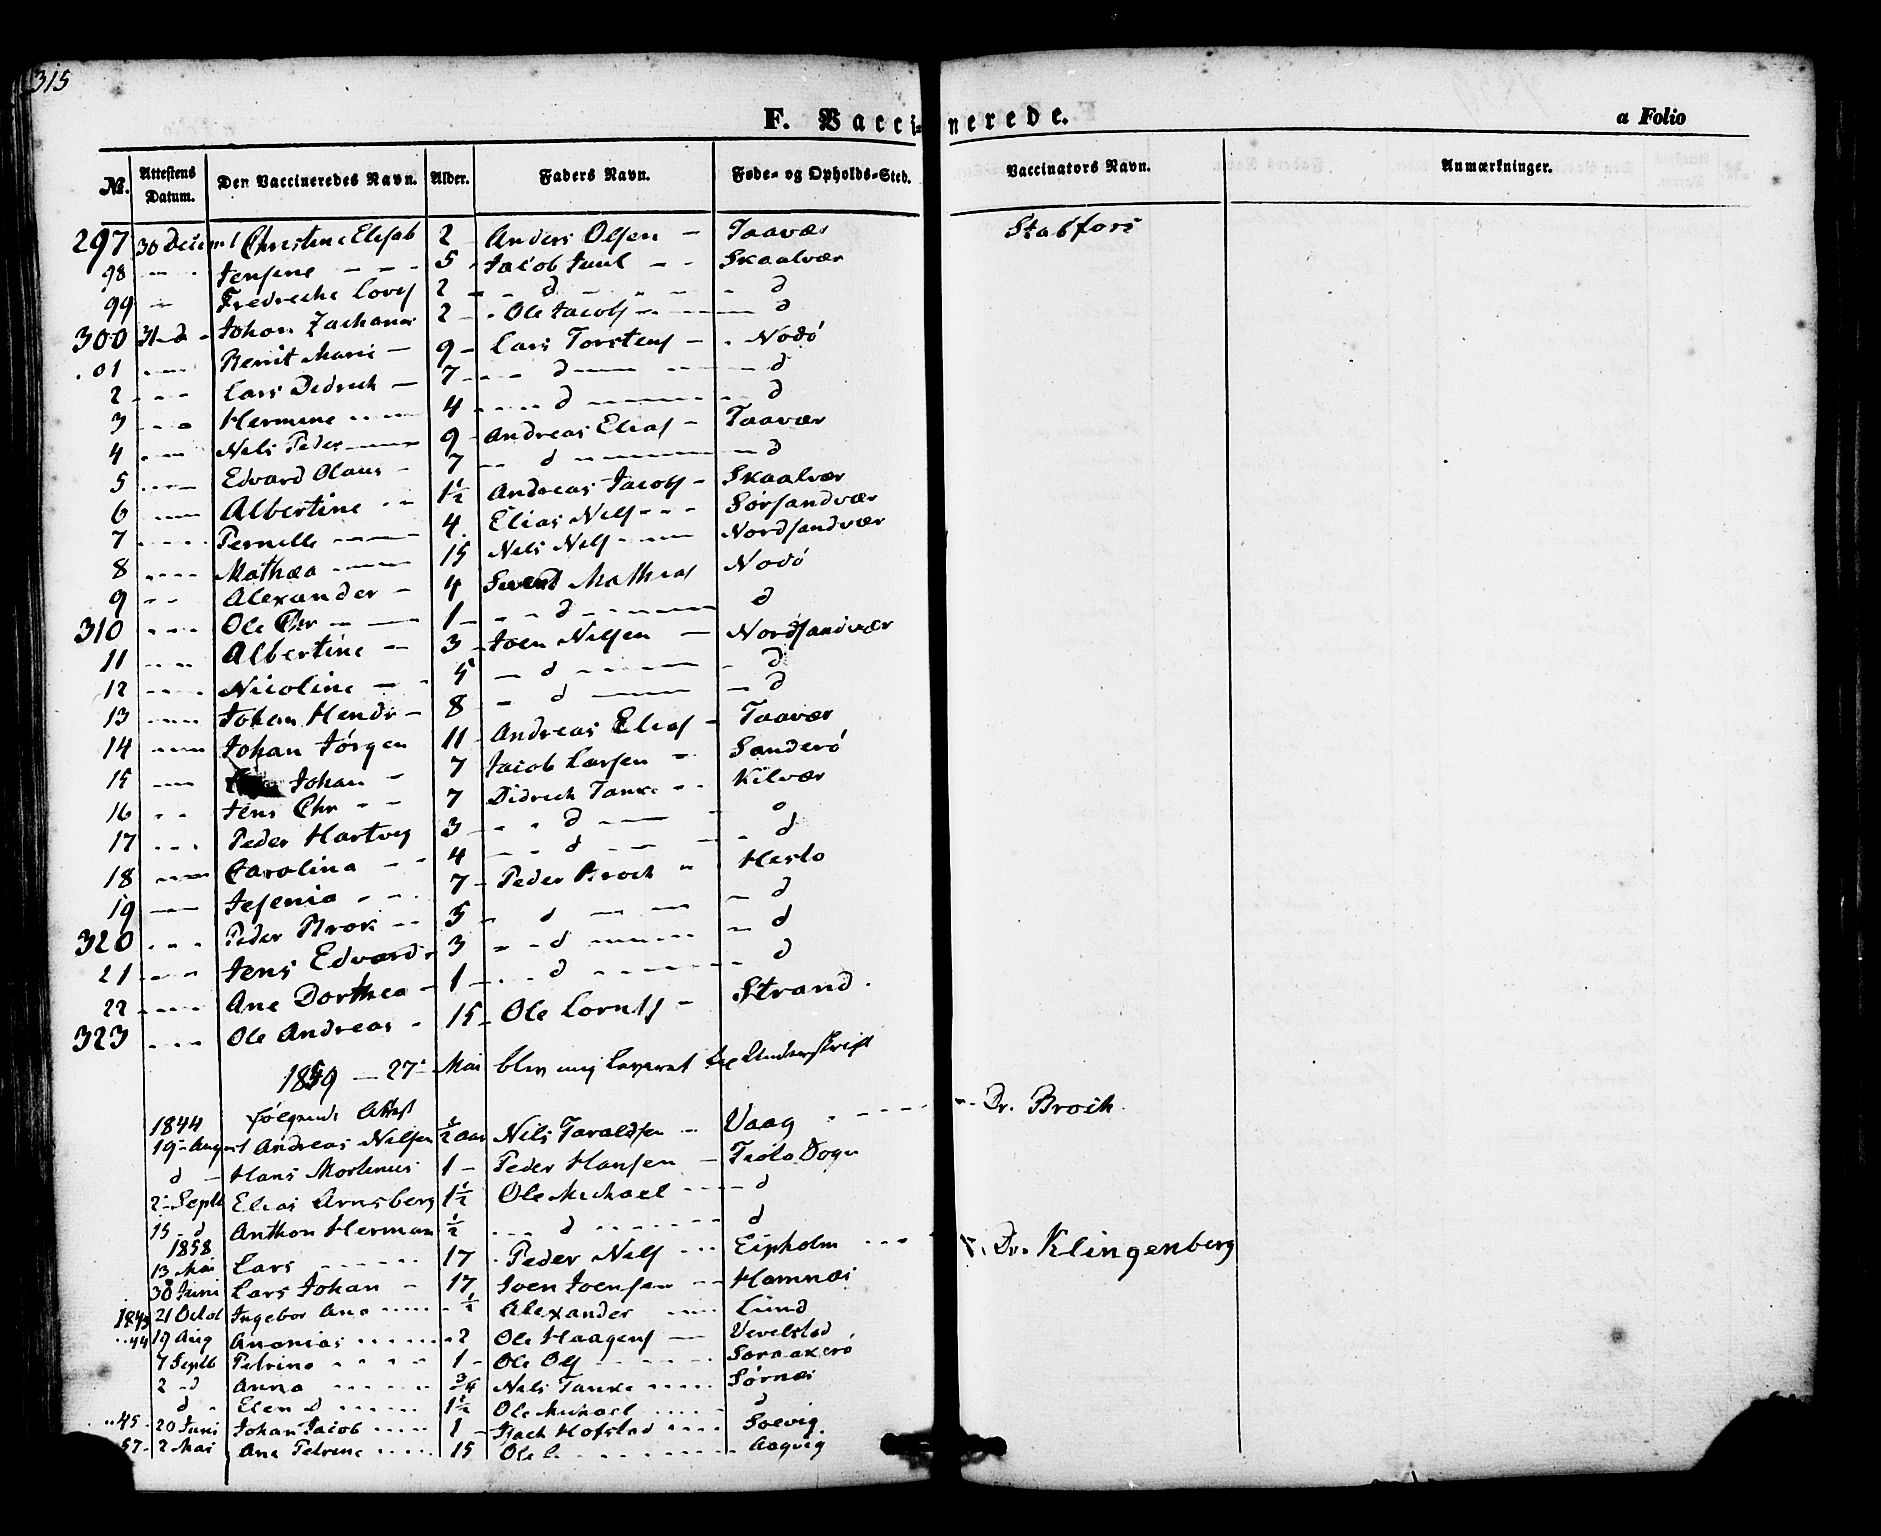 315
F. Vaccinerede. a Folio
No. Attestens Datum. Den Vaccineredes Navn. Alder. Faders Navn. Føde- og Opholds-Sted. Vaccinators Navn. Anmærkninger.
297 30 Decem Christine Elisab 2 Anders Olsen - Taavær Stabfors
98 Jensine - - - 5 Jacob Juul - - Skaalvær
99 Fredrecke Lovis 2 - - d - - d
300 31 - d - Johan Zacharia 2 - Ole Jacobs - - d
01 Berrit Marie - 9 - Lars Torstens - Nodø
2 Lars Didrich - 7 - - d - - d
3 Hermine - - 4 - - d - - d
4 Nils Peder - 9 Andreas Elias - Taavær
5 Edvard Olaus - 7 - d - - d
6 Albertine - - 1½ Andreas Jacobs - Skaalvær
7 Pernille - 4 Elias Nils - - Sørsandvær
8 Mathæa - 15 Nils Nils - - Nordsandvær
9 Alexander - 4 Svend Mathias Nodø
310 Ole Chr - - 1 - - d - - d
11 Albertine - 3 - Joen Nilsen - Nordsandvær
12 Nicoline - - 5 - d - - d
13 Johan Hendr - 8 - d - - d
14 Johan Jørgen 11 Andreas Elias - Taavær
15 Johan - 7 Jacob Larsen - Sanderø
16 Jens Chr - - 7 Didrich Tanke - - Kilvær
17 Peder Hartvig 3 - - d - d
18 Carolina - - 4 - - d - - d
19 Jesenia - - 7 - Peder Broch - Hesto
320 Peder Brok - - 5 - d - - d
21 Jens Edvard - 3 - - d - - d
22 Ane Dorthea - 1 - - d - - d
323 Ole Andreas - 15 - Ole Lornts - Strand.
1859 - 27 - Mai blev mig Underskrift
1844 følgende Attest
19 - August Andreas Nilsen ½ Aar Nils Taraldsen - Vaag - - Dr. Broch
d - Hans Mortinus 1 - Peder Hansen -
2 - Septb Elias Arnsberg 1½ Ole Michael - - d
15 - d Anthon Herman ½ - - d - - d
1858
13 Mai Lars - - 17 - Peder Nils - - - Dr. Klingenberg
30 Juni Lars Johan - 17 Joen Joensen - - Hamnæs
1843 21 Octob Ingebor Ana - - ½ Alexander - - Lund
44 19 Aug Ananias - - 2 Ole Haagens - Vevelstad
7 Septb Petrina - - 1 - Ole Ols - -
2 - d Anna - - ¾ Nils Tanke - - Sørnæs
d - Elen D - - 1½ Ole Michael - - d
45 - 20 Juni Johan Jacob - - 1 - Hofstad - - Solvig
57 - 2 Mai Ane Petrine - - 15 Ole - - Aagvig